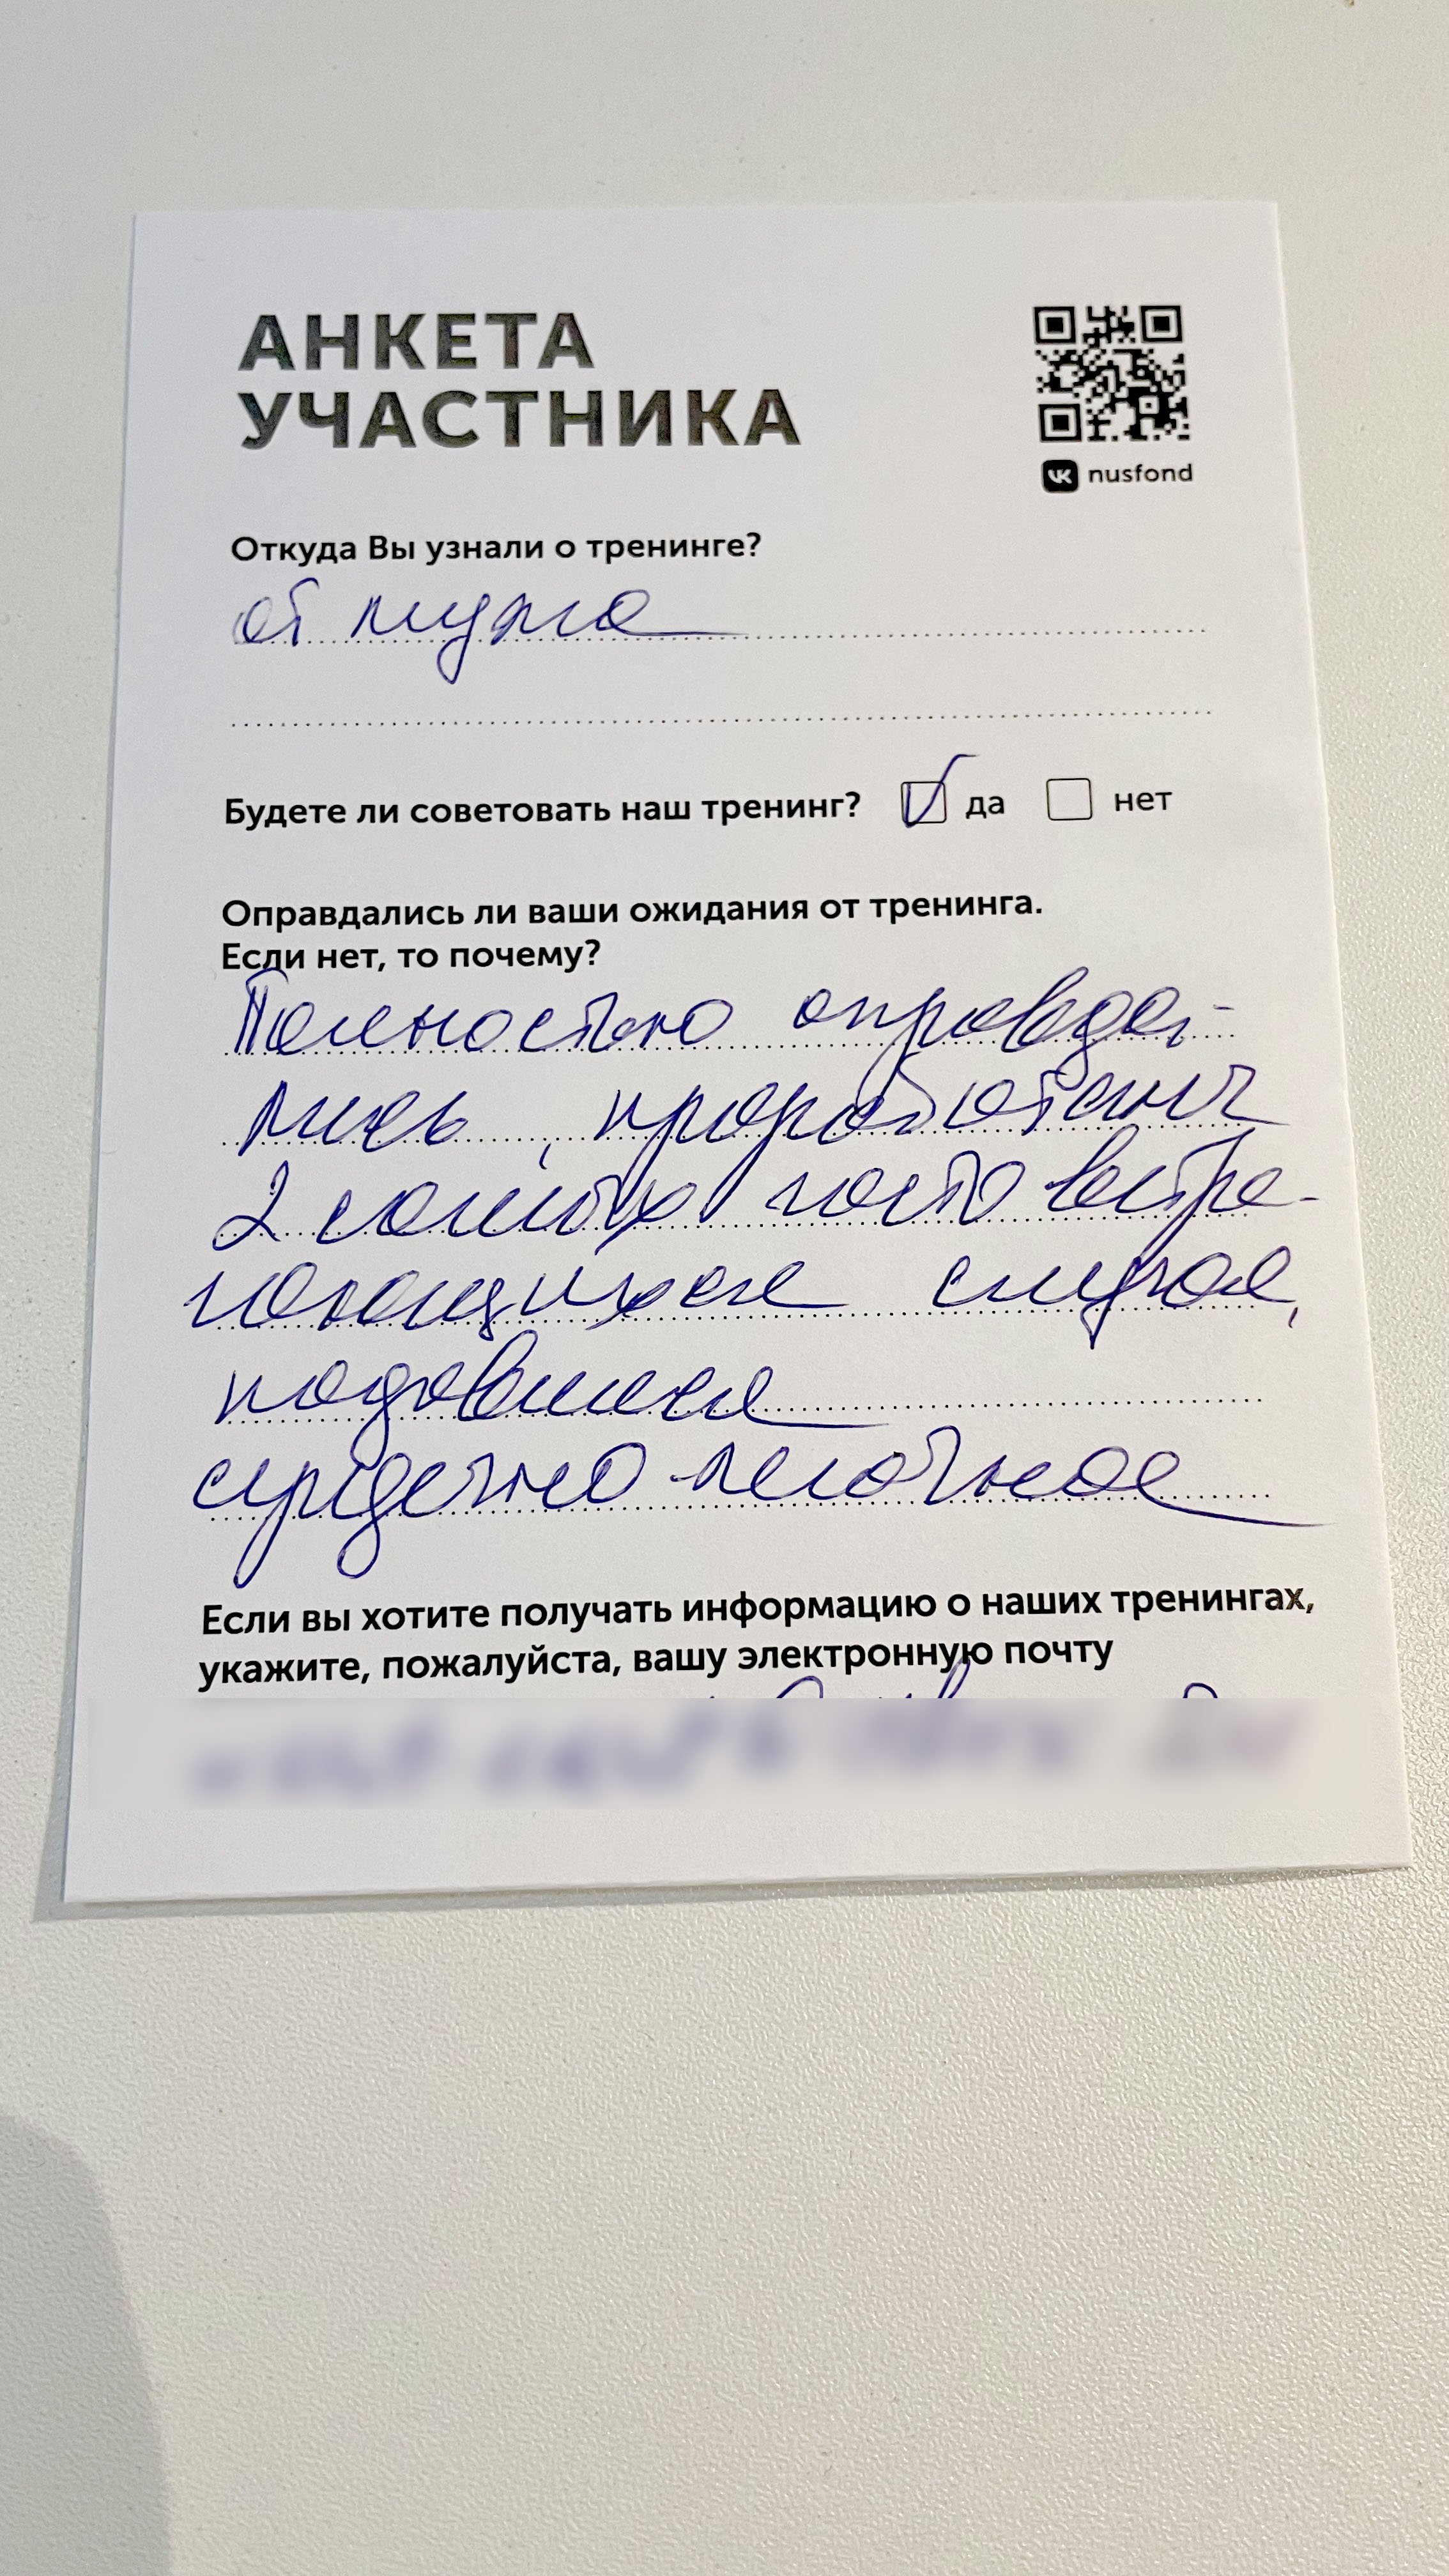 АНКЕТА
УЧАСТНИКА
nusfond
Откуда Вы узнали о тренинге?
от мужа
Будете ли советовать наш тренинг? да нет
Оправдались ли ваши ожидания от тренинга.
Если нет, то почему?
Полностью оправда-
лись, проработаны
2 самых часто встре-
чающихся случая,
подавшися
сердечно-легочное
Если вы хотите получать информацию о наших тренингах,
укажите, пожалуйста, вашу электронную почту